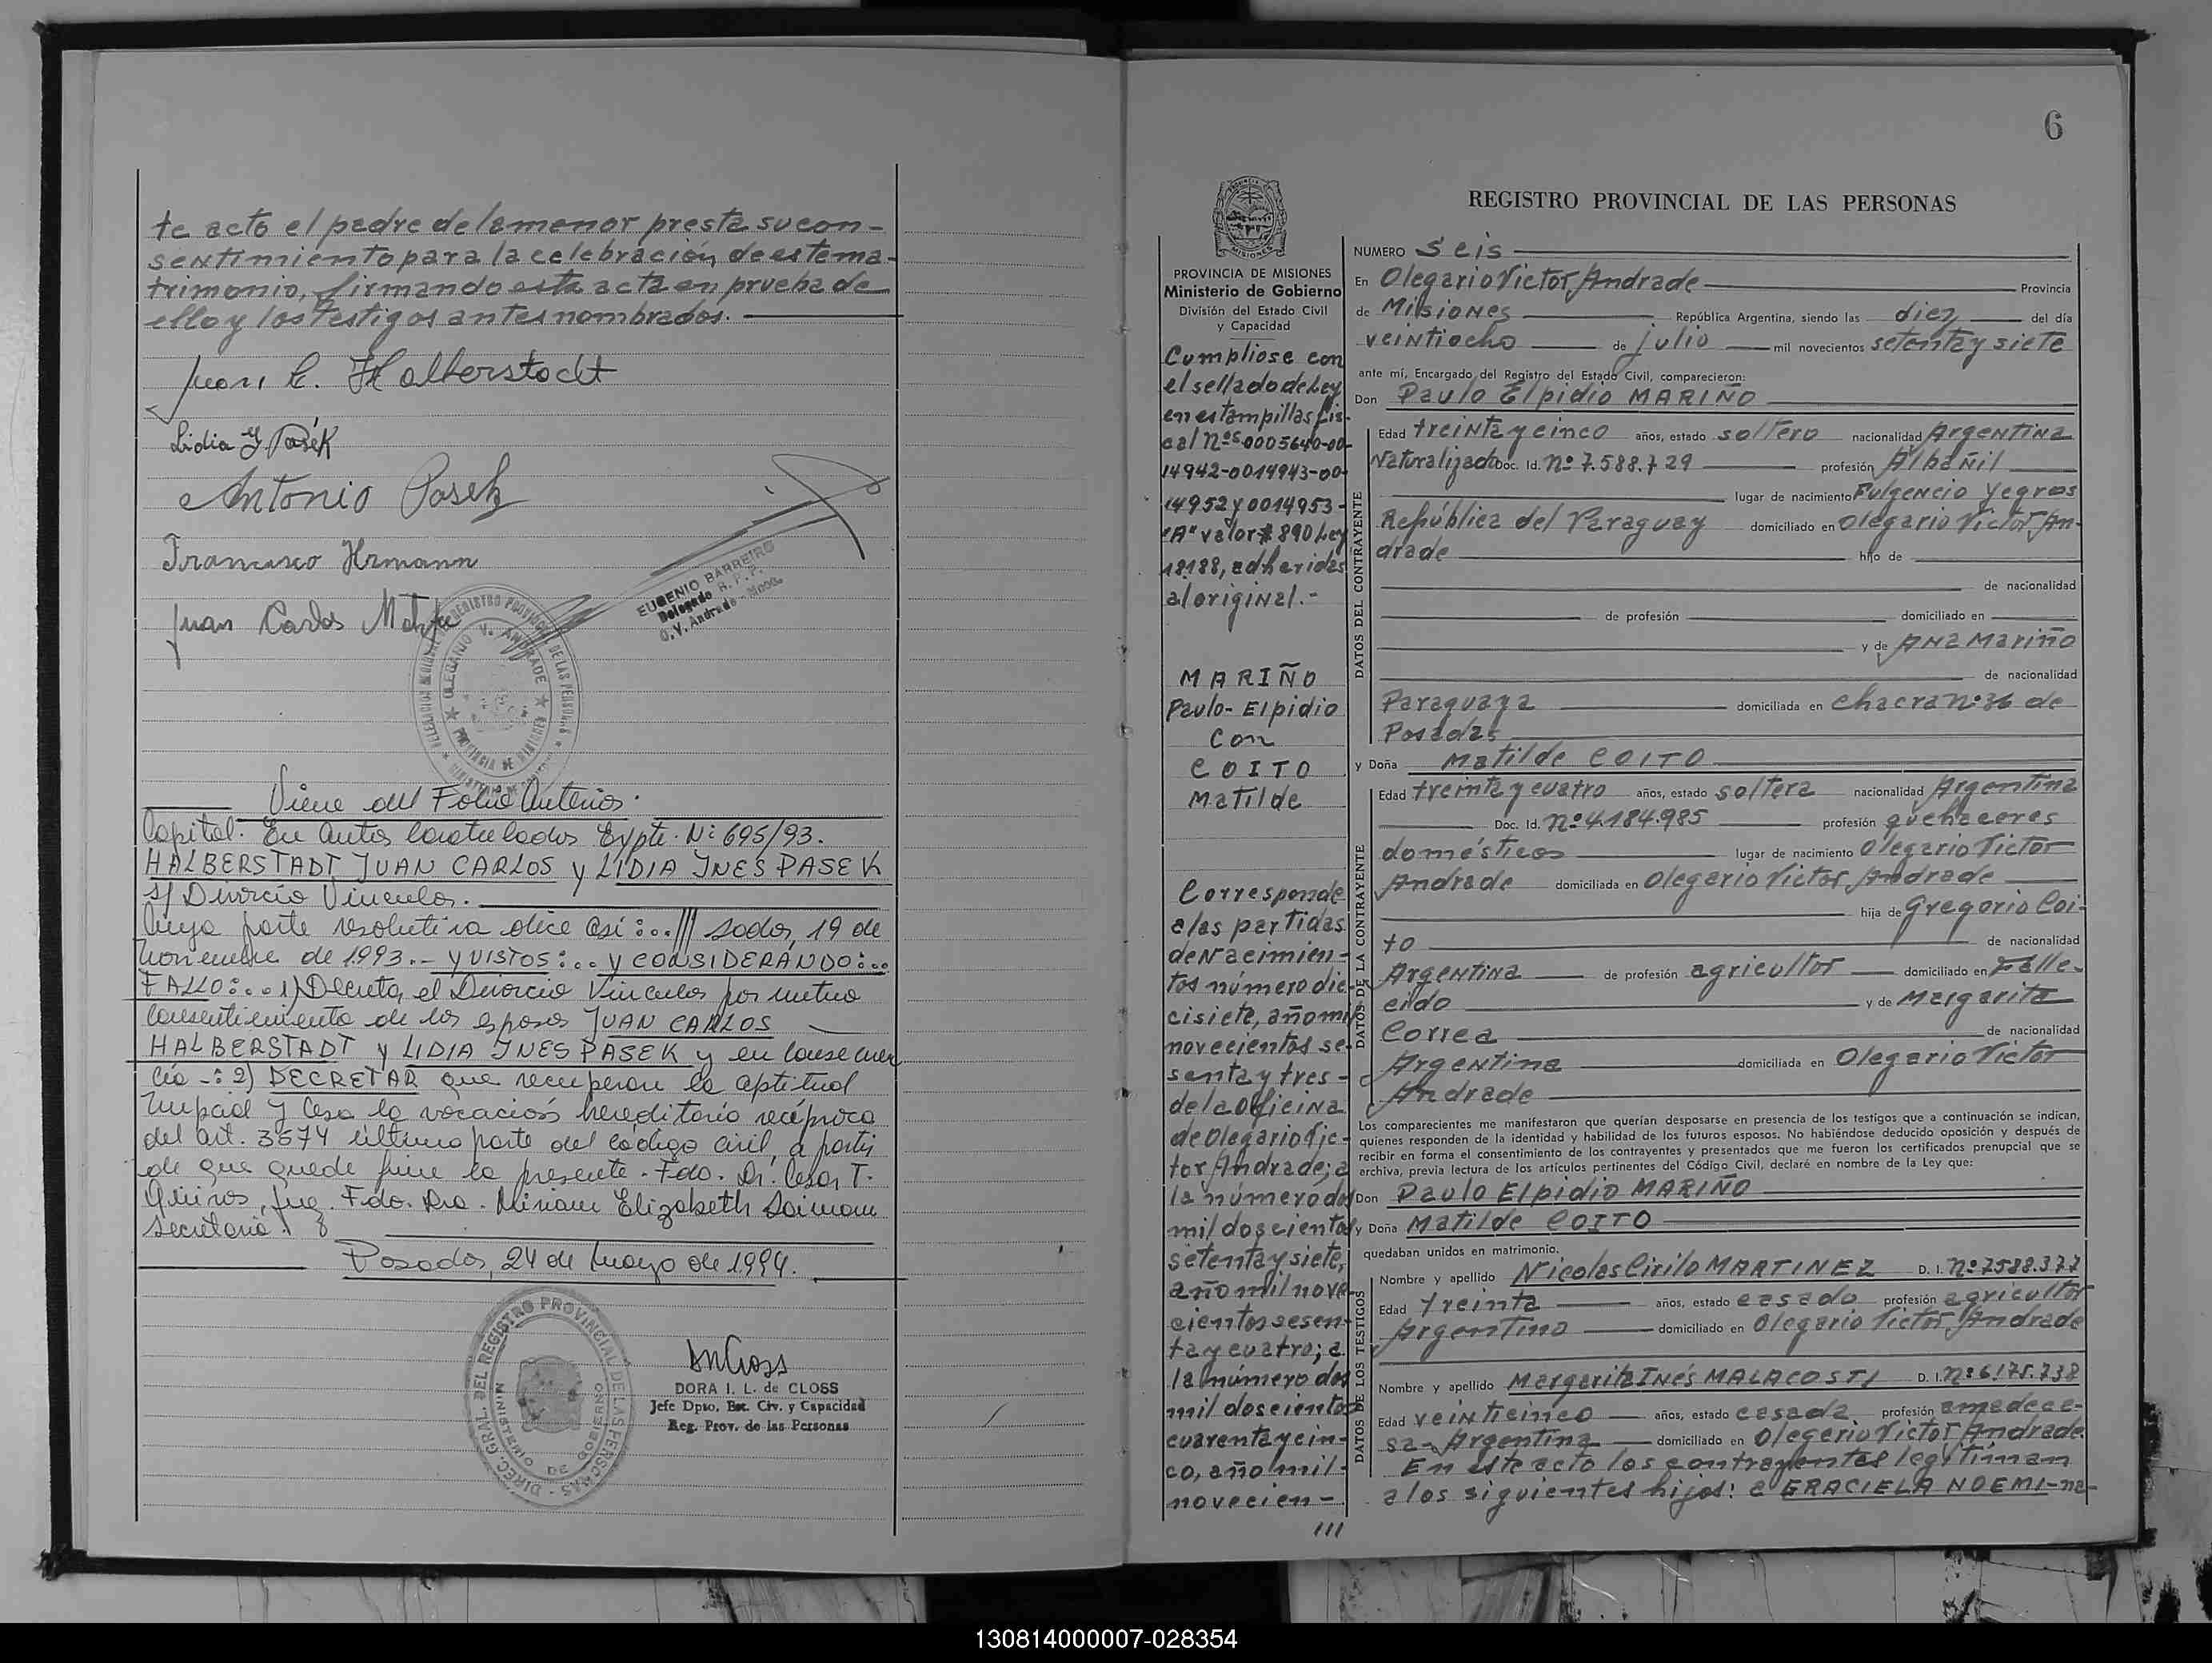 te acto el padre de la menor presta su con-
sentimiento para la celebración de este ma-
trimonio, firmando esta acta en prueba de
ello y los testigos antes nombrados.
Juan C. Halberstadt
Lidia Y. Pasék
Antonio Pasek
Francisco Hrmann
Juan Carlos
EUGENIO BARREIRO
Delegado R.P.P.
O.V. Andrade - Mnes.
REGISTRO PROVINCIAL DE LAS PERSONAS
OLEGARIO V. ANDRADE
PROVINCIA DE MISIONES
Viene del Folio Anterior.
Capital. En autos caratulados Expte. Nº 695/93.
HALBERSTADT JUAN CARLOS y LIDIA INES PASEK
s/ Divorcio Vincular.
Cuya parte resolutiva dice así:..///sadas, 19 de
Noviembre de 1993.- Y VISTOS:.. Y CONSIDERANDO:..
FALLO:.. 1) Decretar el Divorcio Vincular por mutuo
consentimiento de los esposos JUAN CARLOS
HALBERSTADT y LIDIA INES PASEK y en consecuen
cia -: 2) DECRETAR que recuperan la aptitud
nupcial y cesa la vocación hereditaria recíproca
del art. 3574 última parte del código civil, a partir
de que quede firme la presente. Fdo. Dr. Cesar T.
Quiros, Juez. Fdo. Dra. Miriam Elizabeth
Secretaria.
Posadas, 24 de Marzo de 1994.
DIREC. GRAL. DEL REGISTRO PROVINCIAL DE LAS PERSONAS
MINISTERIO DE GOBIERNO
DORA I. L. de CLOSS
Jefe Dpto. Est. Civ. y Capacidad
Reg. Prov. de las Personas
6
PROVINCIA DE MISIONES
Ministerio de Gobierno
División del Estado Civil
y Capacidad
Cumpliose con
el sellado de Ley
en estampillas fis-
cal Nºs 0005640-00-
14942-0014943-00-
14952 y 0014953-
"A" valor $ 890 Ley
18188, adheridas
al original.-
MARIÑO
Paulo-Elpidio
con
COITO
Matilde
Corresponde
a las partidas
de Nacimien-
tos número die-
cisiete, año mil
novecientos se-
senta y tres-
de la Oficina
de Olegario Vic-
tor Andrade; a
la número dos
mil doscientos
setenta y siete,
año mil nove-
cientos sesen-
ta y cuatro; a
la número dos
mil doscientos
cuarenta y cin-
co, año mil-
novecien-
///
REGISTRO PROVINCIAL DE LAS PERSONAS
NUMERO Seis
En Olegario Victor Andrade Provincia
de Misiones República Argentina, siendo las diez del día
veintiocho de julio mil novecientos setenta y siete
ante mí, Encargado del Registro del Estado Civil, comparecieron:
Don Paulo Elpidio MARIÑO
DATOS DEL CONTRAYENTE
Edad treinta y cinco años, estado soltero nacionalidad Argentina
Naturalizado Doc. Id. Nº 7.588.729 profesión Albañil
lugar de nacimiento Fulgencio Yegros
República del Paraguay domiciliado en Olegario Victor An-
drade hijo de
de nacionalidad
de profesión domiciliado en
y de Ana Mariño
de nacionalidad
Paraguaya domiciliada en Chacra Nº 36 de
Posadas
y Doña Matilde COITO
DATOS DE LA CONTRAYENTE
Edad treinta y cuatro años, estado soltera nacionalidad Argentina
Doc. Id. Nº 4.184.985 profesión quehaceres
domésticos lugar de nacimiento Olegario Victor
Andrade domiciliada en Olegario Victor Andrade
hija de Gregorio Coi-
to de nacionalidad
Argentina de profesión agricultor domiciliado en Falle-
cido y de Margarita
Correa de nacionalidad
Argentina domiciliada en Olegario Victor
Andrade
Los comparecientes me manifestaron que querían desposarse en presencia de los testigos que a continuación se indican,
quienes responden de la identidad y habilidad de los futuros esposos. No habiéndose deducido oposición y después de
recibir en forma el consentimiento de los contrayentes y presentados que me fueron los certificados prenupcial que se
archiva, previa lectura de los artículos pertinentes del Código Civil, declaré en nombre de la Ley que:
Don Paulo Elpidio MARIÑO
y Doña Matilde COITO
quedaban unidos en matrimonio.
DATOS DE LOS TESTIGOS
Nombre y apellido Nicolas Cirilo MARTINEZ D. I. Nº 7588.377
Edad treinta años, estado casado profesión agricultor
Argentino domiciliado en Olegario Victor Andrade
Nombre y apellido Margarita Inés MALACOSTI D. I. Nº 6.175.738
Edad veinticinco años, estado casada profesión ama de ca-
sa - Argentina domiciliado en Olegario Victor Andrade
En este acto los contrayentes legitiman
a los siguientes hijos: a GRACIELA NOEMI-na-
130814000007-028354